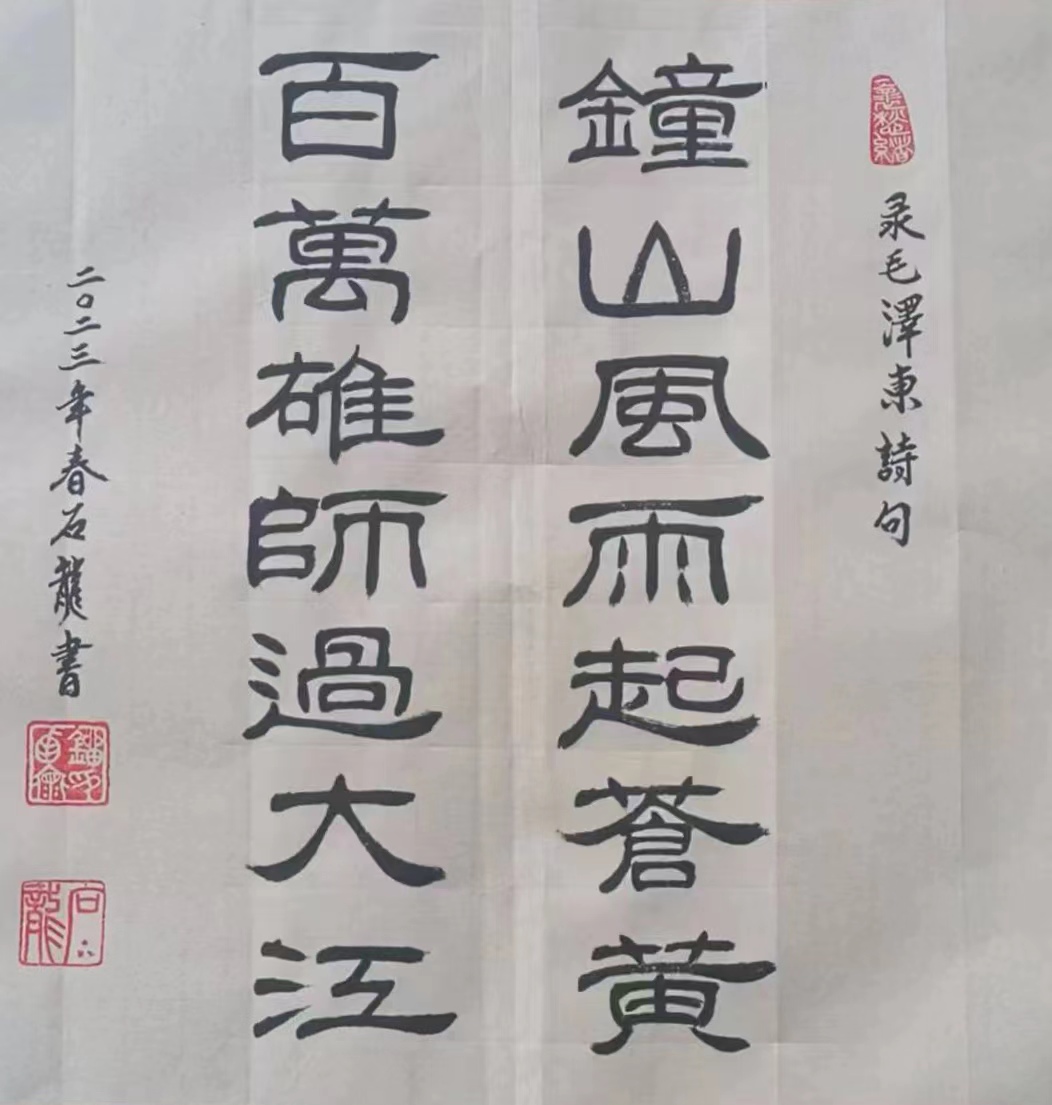 录毛澤東詩句
鐘山風雨起蒼黄
百萬雄師過大江
二〇二三年春石龍書
石龍